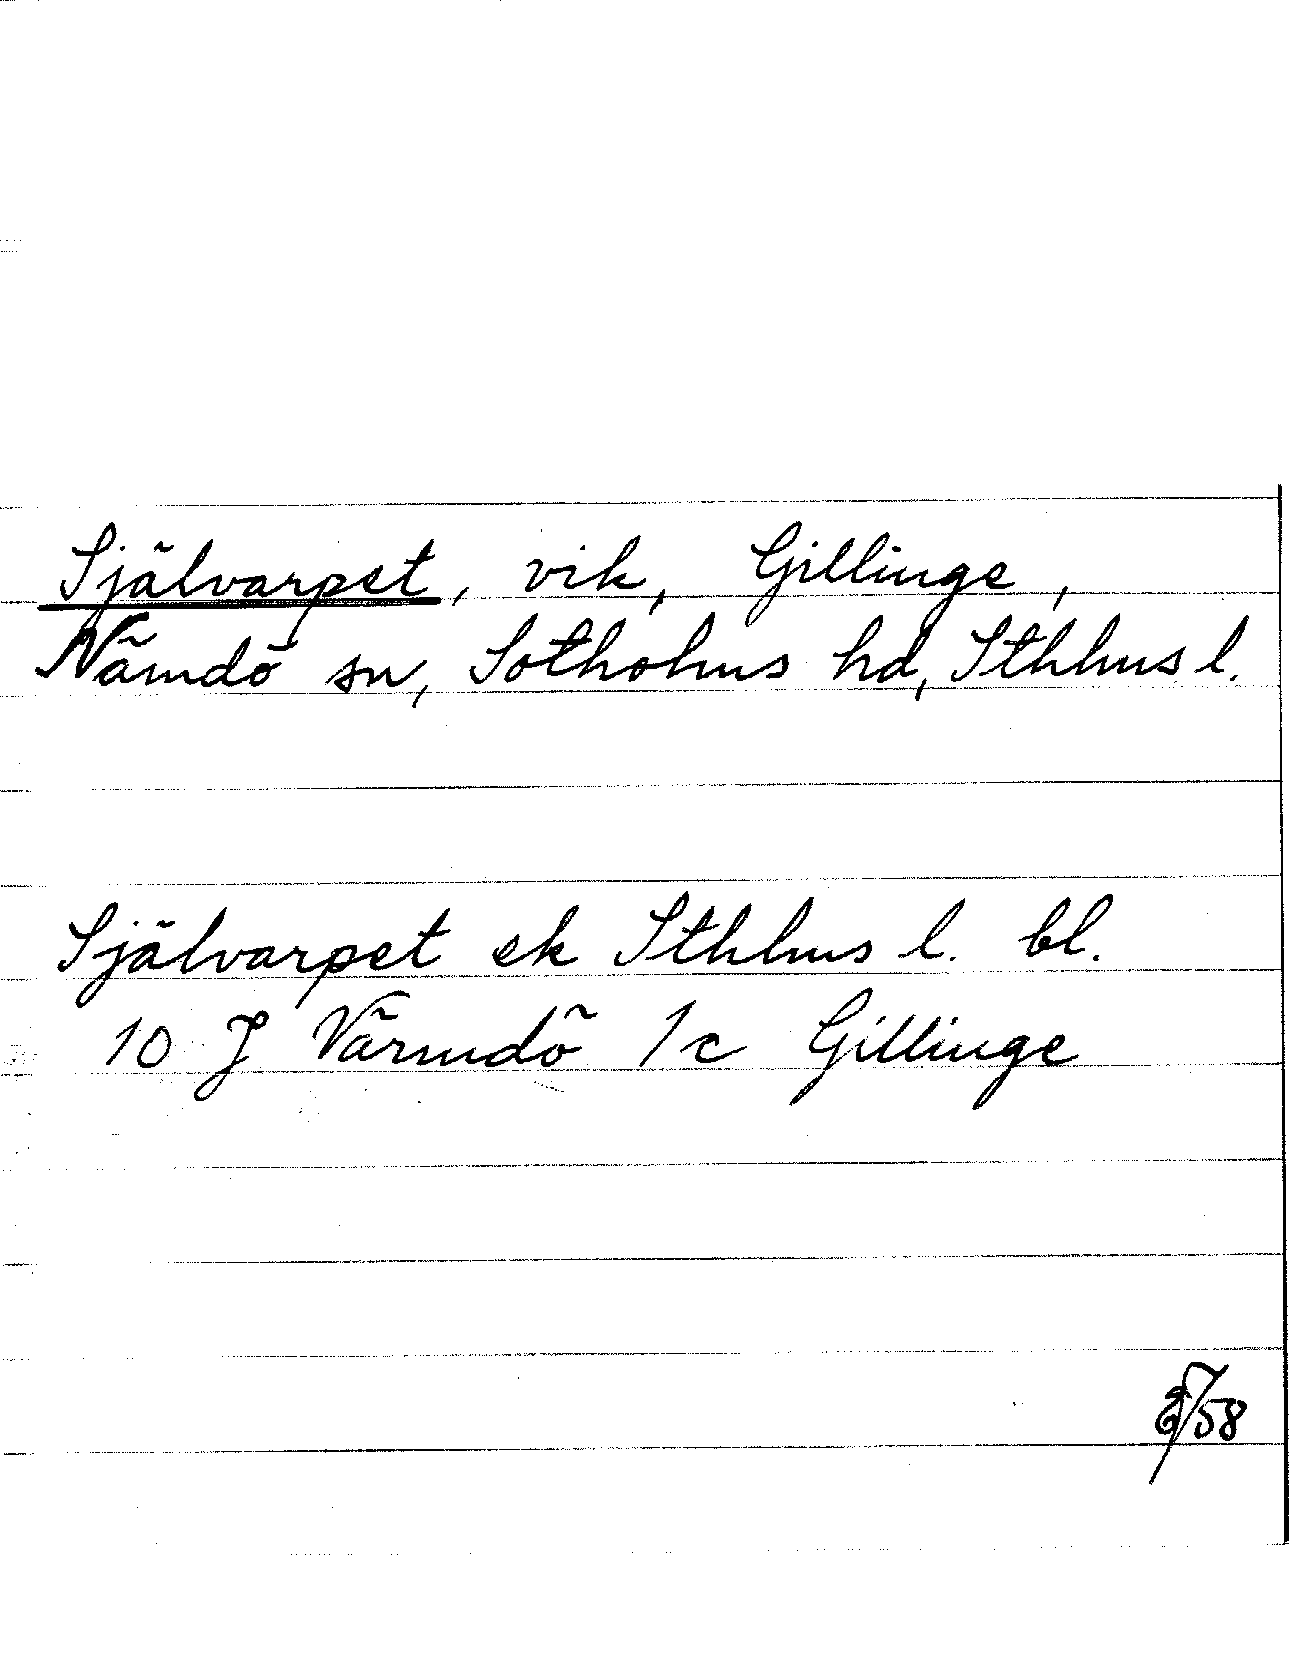 Självarpet, vik, Gillinge,
Nämdö sn, Sotholms hd, Sthlms l.
Självarpet ek Sthlms l. bl.
10 J Värmdö 1c Gillinge
/58